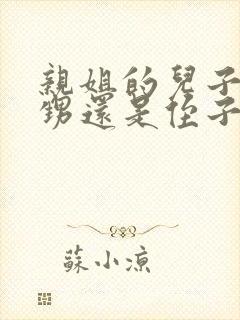 親姐的兒子
甥還是侄子
蘇小涼